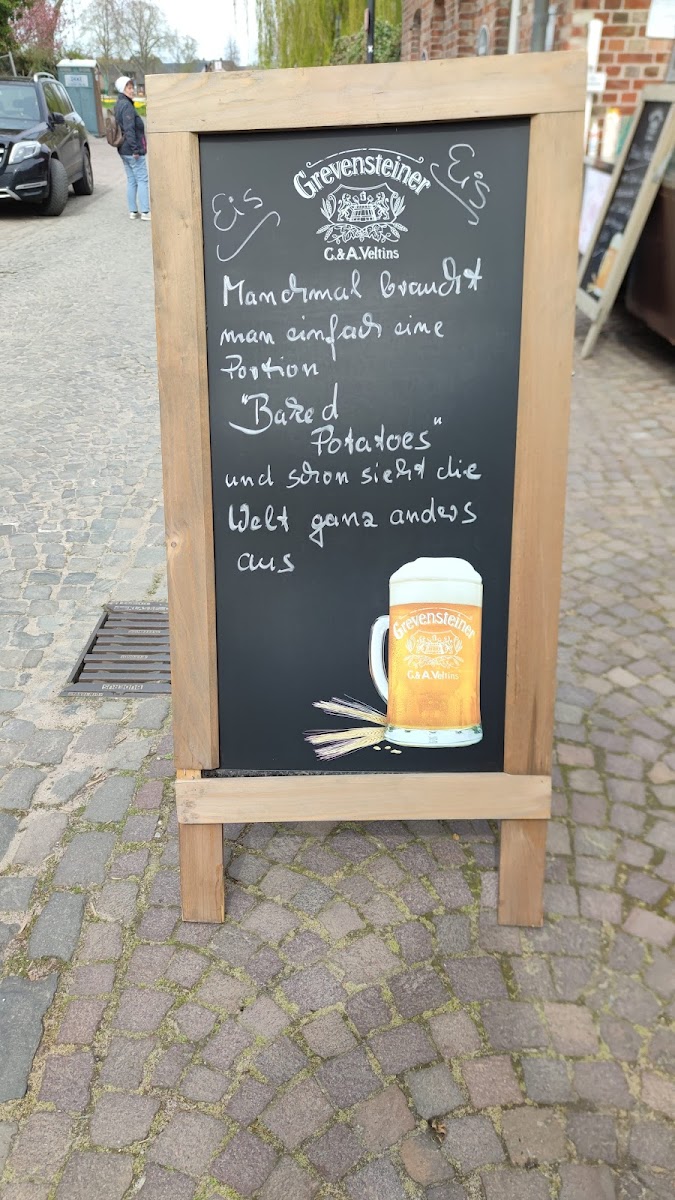 Grevensteiner
Eis
Eis
C.& A. Veltins
Manchmal braucht
man einfach eine
Portion
"Baked
Potatoes"
und schon sieht die
Welt ganz anders
aus
Grevensteiner
C.& A. Veltins